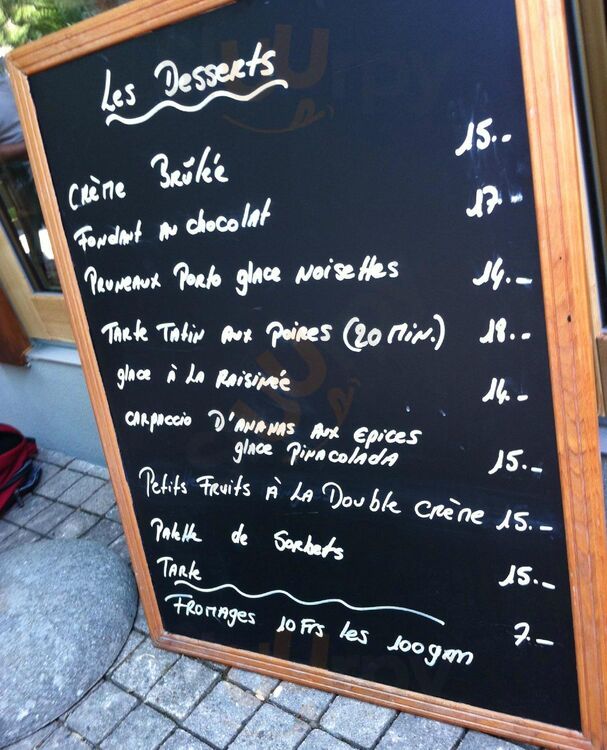 Les Desserts
Crème Brûlée 15.-
Fondant au chocolat 17.-
Pruneaux Porto glace noisettes 14.-
Tarte Tatin aux poires (20 min.) 18.-
glace à la Raisinée 14.-
carpaccio d'ananas aux epices
glace Pinacolada 15.-
Petits Fruits à la Double crème 15.-
Palette de Sorbets 15.-
Tarte 7.-
Fromages 10 Frs les 100 gram